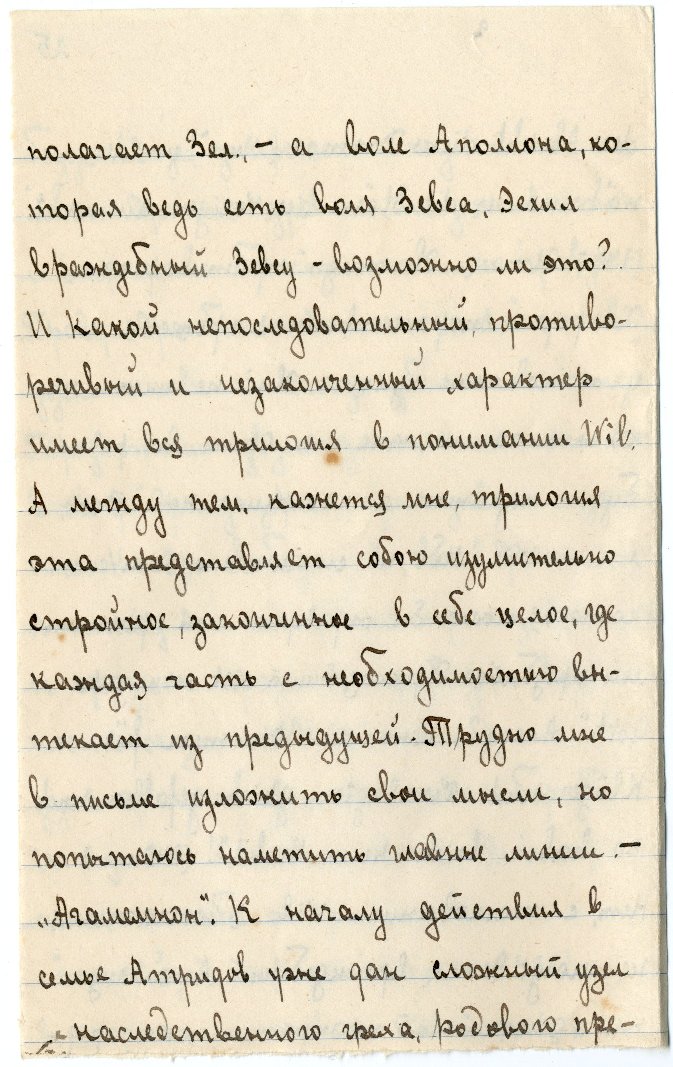 полагает Зел., – а воле Аполлона, ко-
торая ведь есть воля Зевса. Эсхил
враждебный Зевсу – возможно ли это?
И какой непоследовательный, противо-
речивый и незаконченный характер
имеет вся трилогия в понимании Wil.
А между тем, кажется мне, трилогия
эта представляет собою изумительно
стройное, законченное в себе целое, где
каждая часть с необходимостью вы-
текает из предыдущей. Трудно мне
в письме изложить свои мысли, но
попытаюсь наметить главные линии. –
„Агамемнон“. К началу действия в
семье Атридов уже дан сложный узел
наследственного греха, родового пре-